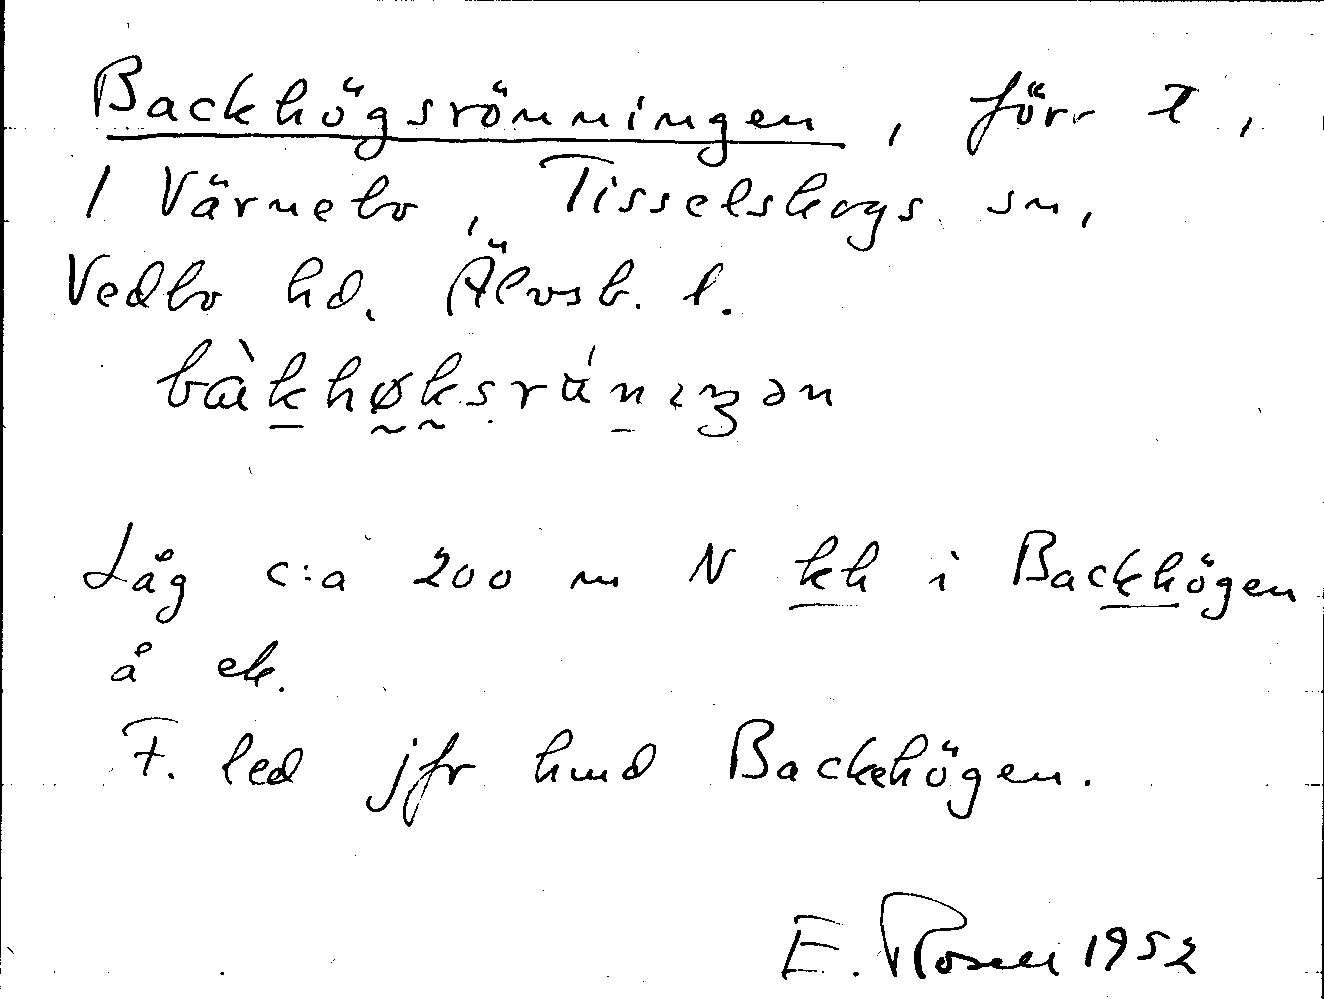 Backhögsrönningen, förr t,
1 Värnebo, Tisselskogs sn,
Vedbo hd. Älvsb. l.
bàkhøksrániŋən
Låg c:a 200 m N kh i Backhögen
å ek.
F. led jfr hmd Backhögen.
E. Rosell 1952